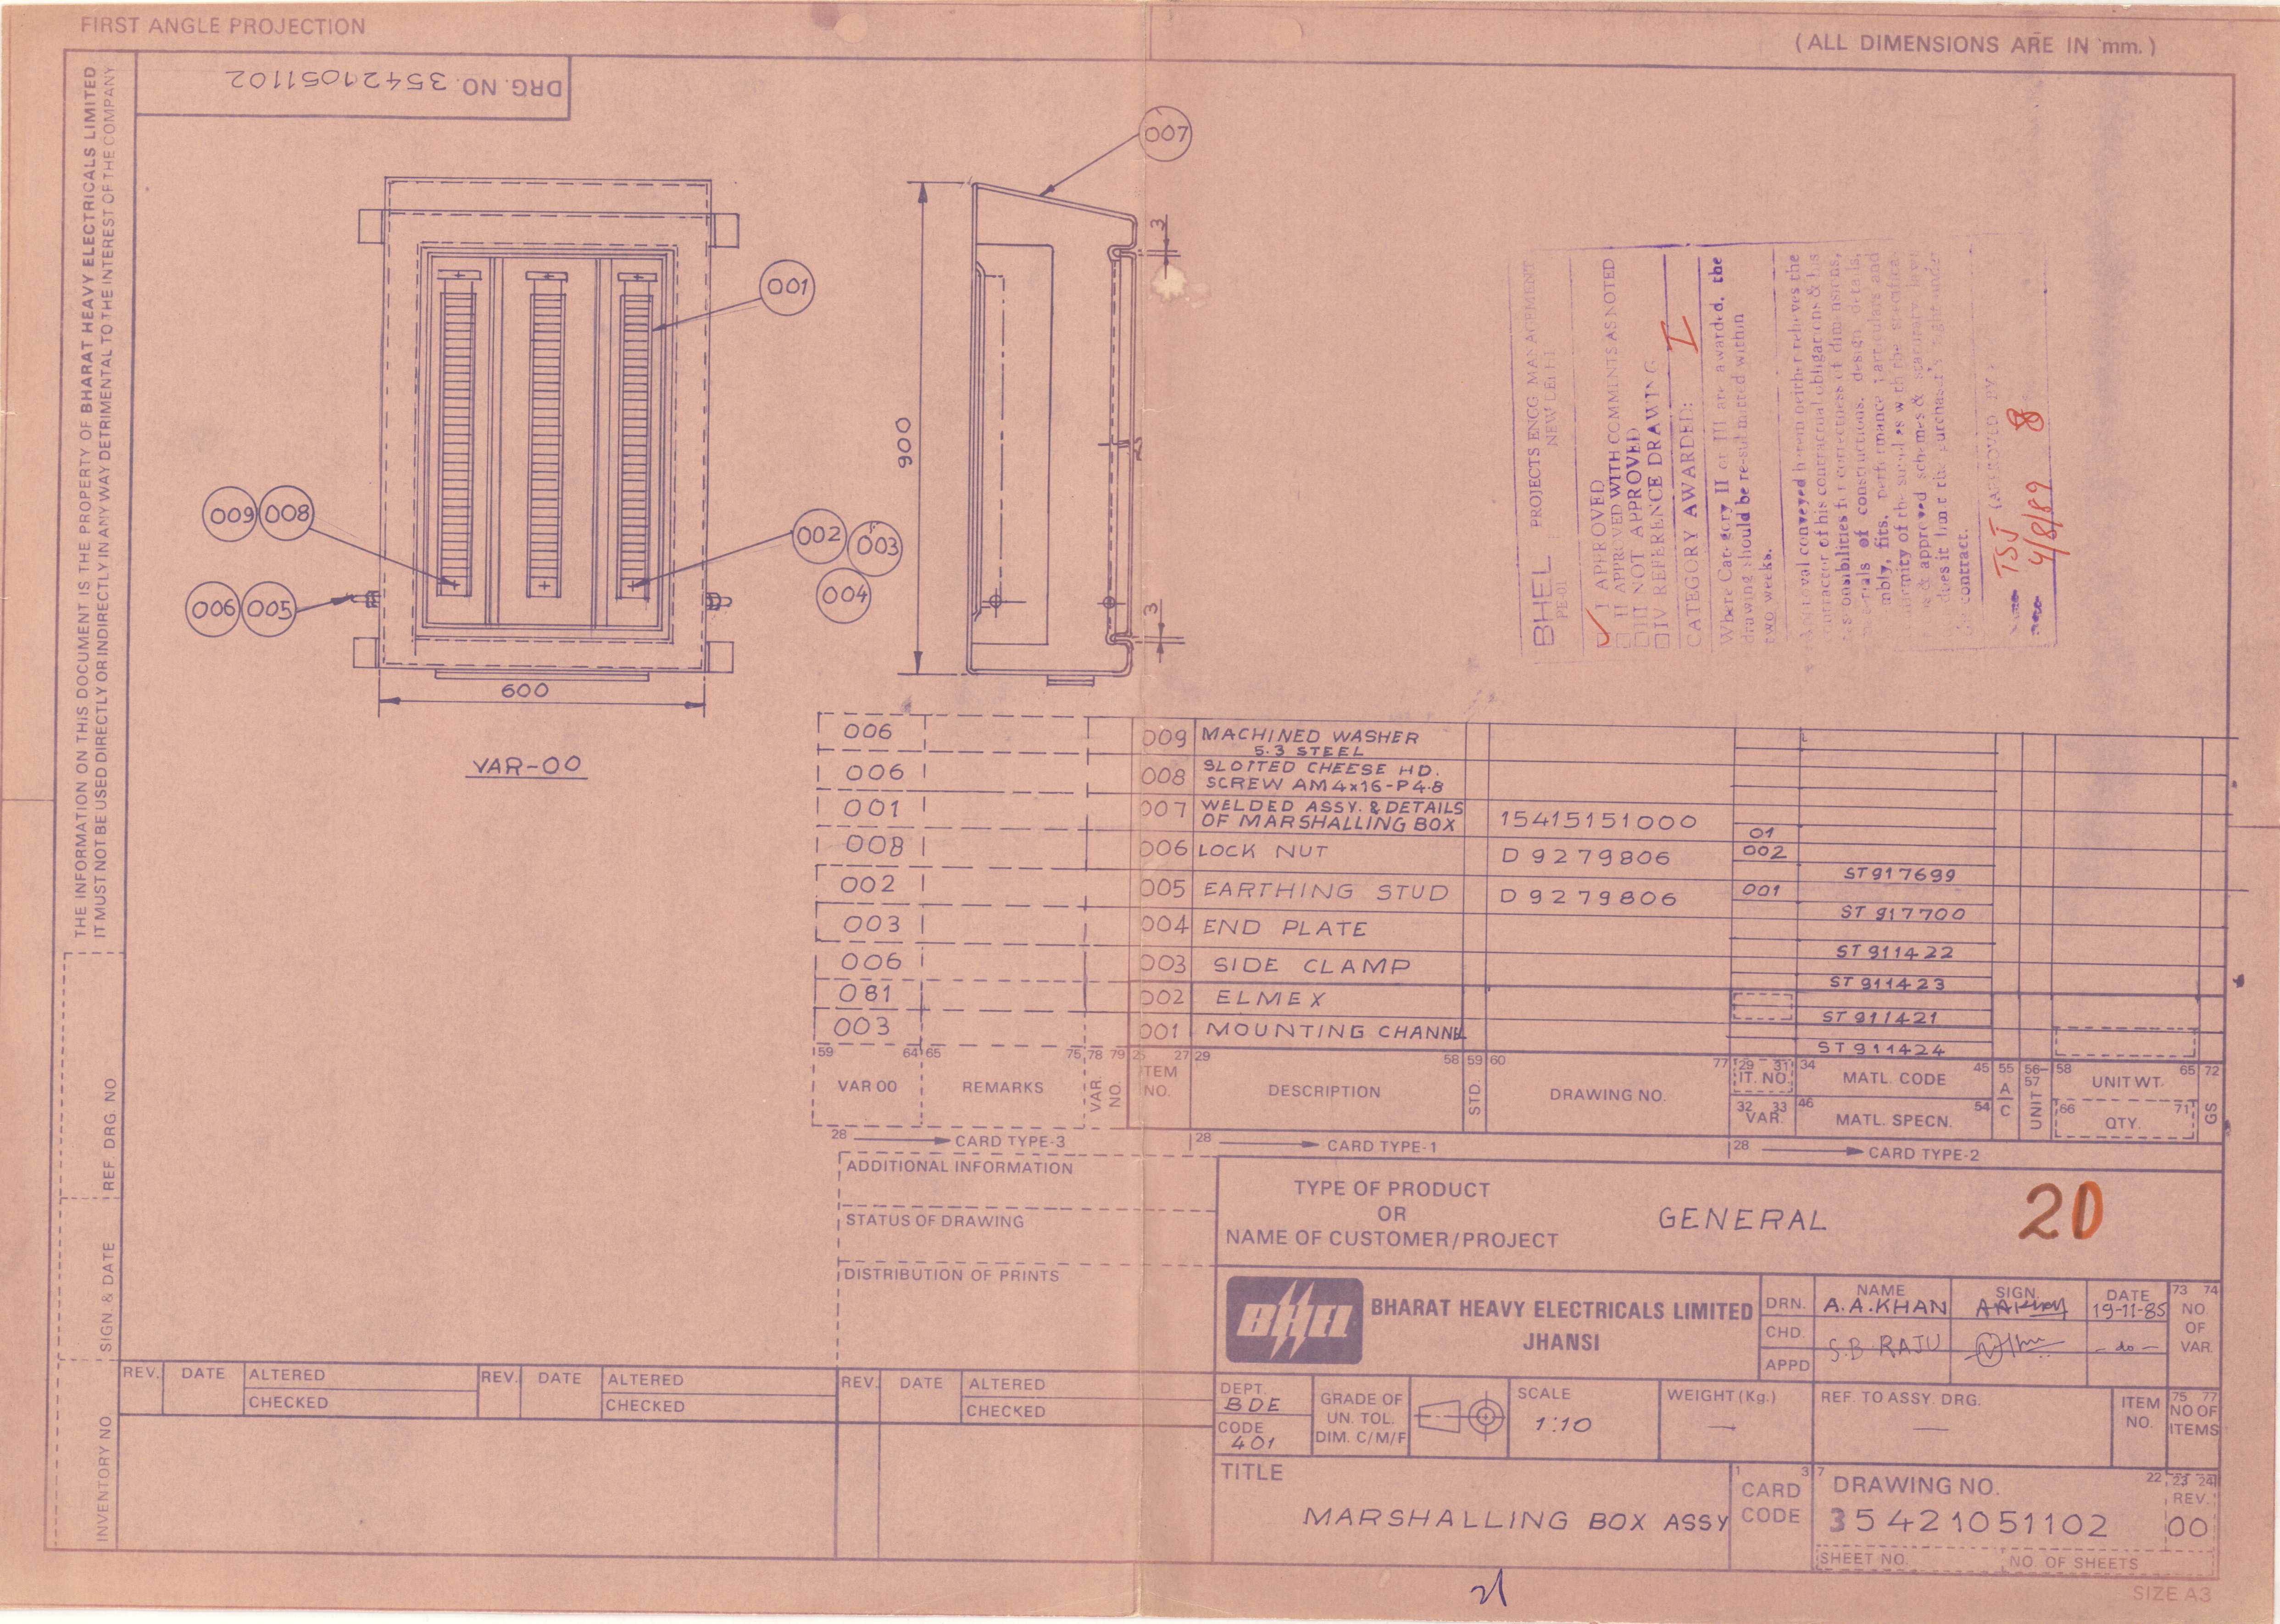 FIRST ANGLE PROJECTION
(ALL DIMENSIONS ARE IN mm.)
DRG. NO. 35421051102
THE INFORMATION ON THIS DOCUMENT IS THE PROPERTY OF BHARAT HEAVY ELECTRICALS LIMITED
IT MUST NOT BE USED DIRECTLY OR INDIRECTLY IN ANY WAY DETRIMENTAL TO THE INTEREST OF THE COMPANY
REF DRG NO
SIGN & DATE
INVENTORY NO
007
001
009 008
006 005
002 003
004
900
600
3
3
VAR-00
BHEL PROJECTS ENGG MANAGEMENT
PE-01 NEW DELHI
I APPROVED
II APPROVED WITH COMMENTS AS NOTED
III NOT APPROVED
IV REFERENCE DRAWING
CATEGORY AWARDED: I
Where Category II or III are awarded, the
drawing should be re-submitted within
two weeks.
conveyed herein neither relieves the
contractor of his contractual obligations & his
responsibilities for correctness of dimensions,
materials of constructions, design details,
assembly, fits, performance particulars and
conformity of the supplies with the
& approved schemes &
does it limit the purchaser's right under
contract.
(APPROVED BY)
TSJ
4/8/89
006 009 MACHINED WASHER
5.3 STEEL
006 008 SLOTTED CHEESE HD.
SCREW AM4x16-P4.8
001 007 WELDED ASSY. & DETAILS
OF MARSHALLING BOX 15415151000 01
008 006 LOCK NUT D 9279806 002 ST917699
002 005 EARTHING STUD D 9279806 001 ST 917700
003 004 END PLATE ST 911422
006 003 SIDE CLAMP ST 911423
081 002 ELMEX ST 911421
003 001 MOUNTING CHANNE ST 911424
59 64 65 75 78 79 25 27 29 58 59 60 77 29 31 34 45 55 56-57 58 65 72
VAR 00 REMARKS VAR. NO. ITEM NO. DESCRIPTION STD. DRAWING NO. IT. NO. MATL. CODE A/C UNIT UNIT WT. GS
32 33 VAR. 46 54 MATL. SPECN. 66 71 QTY.
28 CARD TYPE-3 28 CARD TYPE-1 28 CARD TYPE-2
ADDITIONAL INFORMATION
STATUS OF DRAWING
DISTRIBUTION OF PRINTS
TYPE OF PRODUCT
OR
NAME OF CUSTOMER/PROJECT
GENERAL
20
BHEL
BHARAT HEAVY ELECTRICALS LIMITED
JHANSI
NAME SIGN. DATE
DRN. A.A.KHAN AAKhan 19-11-85
CHD. S.B.RAJU -do-
APPD
73 74
NO.
OF
VAR.
REV. DATE ALTERED
CHECKED
REV. DATE ALTERED
CHECKED
REV. DATE ALTERED
CHECKED
DEPT. BDE
CODE 401
GRADE OF
UN. TOL.
DIM. C/M/F
SCALE
1:10
WEIGHT (Kg.)
—
REF. TO ASSY. DRG.
—
ITEM
NO.
75 77
NO OF
ITEMS
TITLE
MARSHALLING BOX ASSY
1 3
CARD
CODE
7 22
DRAWING NO.
35421051102
23 24
REV.
00
SHEET NO.
NO. OF SHEETS
SIZE A3
21